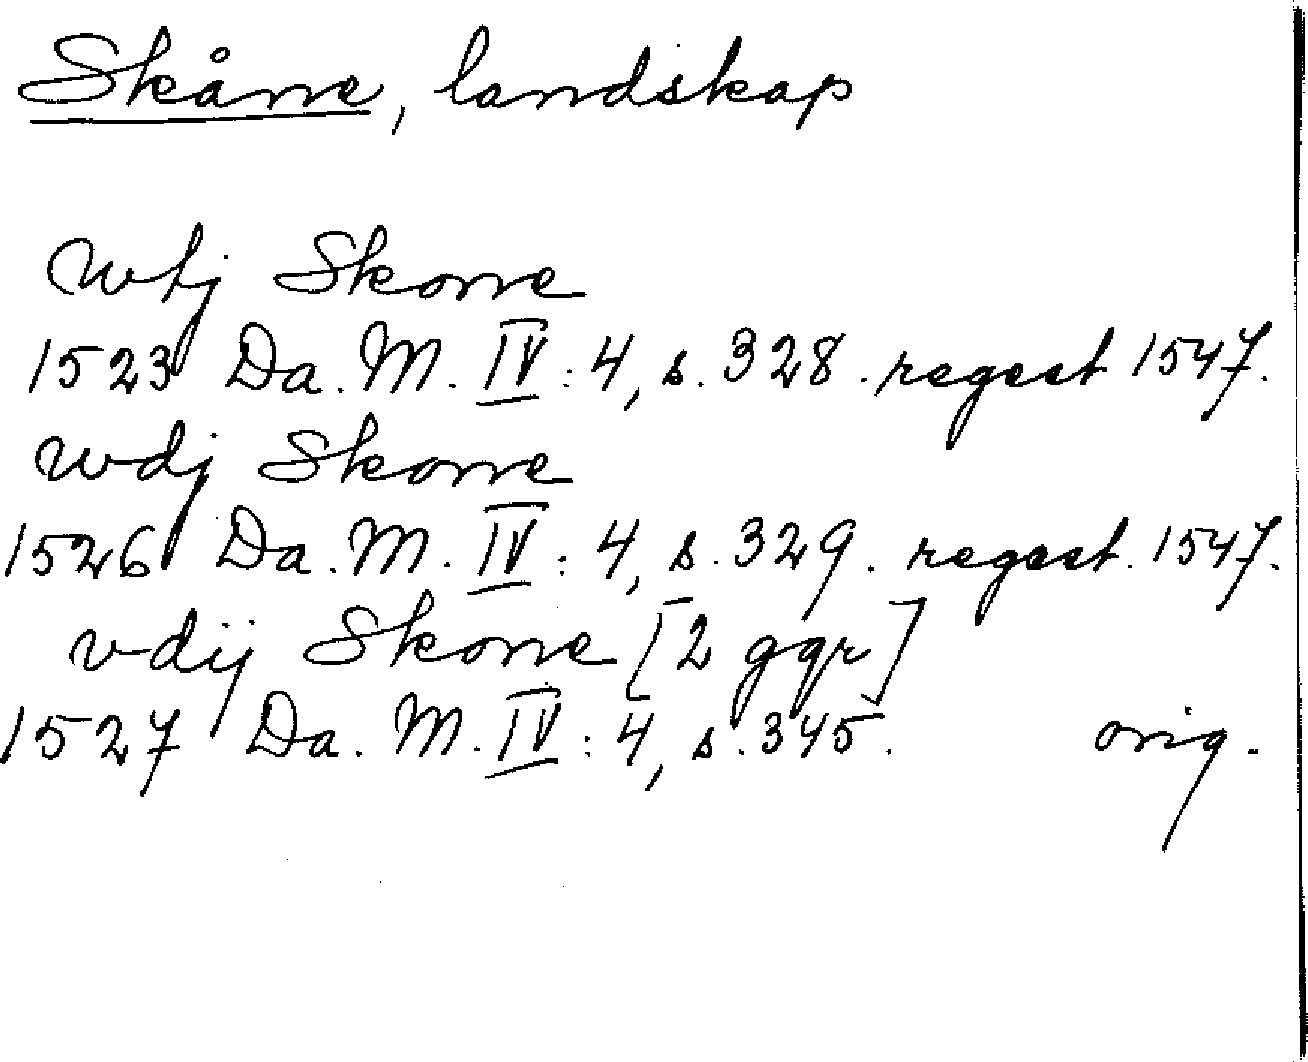 Skåne, landskap
wtj Skone
1523 Da. M. IV: 4, s. 328. regest 1547.
wdj Skone
1526 Da. M. IV: 4, s. 329. regest. 1547.
vdij Skone [2 ggr]
1527 Da. M. IV: 4, s. 345. orig.